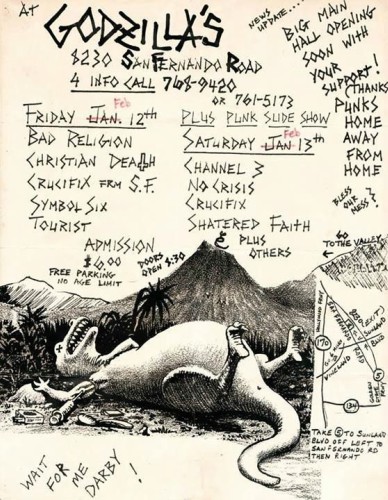 AT GODZILLA'S
8230 SAN FERNANDO ROAD
4 INFO CALL 768-9420
OR 761-5173
NEWS UPDATE....
BIG MAIN
HALL OPENING
SOON WITH
YOUR
SUPPORT!
(THANKS
PUNKS
HOME
AWAY
FROM
HOME
BLESS
OUR
MESS)
FRIDAY JAN. Feb 12th
BAD RELIGION
CHRISTIAN DEATH
CRUCIFIX FRM S.F.
SYMBOL SIX
TOURIST
PLUS PUNK SLIDE SHOW
SATURDAY JAN Feb 13th
CHANNEL 3
NO CRISIS
CRUCIFIX
SHATERED FAITH
& PLUS
OTHERS
ADMISSION
$6.00
DOORS
OPEN 4:30
FREE PARKING
NO AGE LIMIT
GO
TO THE VALLEY
8230
SUNLAND
BLVD
VINELAND
170
5
134
TAKE 5 TO SUNLAND
BLVD OFF LEFT TO
SAN FERNANDO RD
THEN RIGHT
WAIT
FOR ME
DARBY!